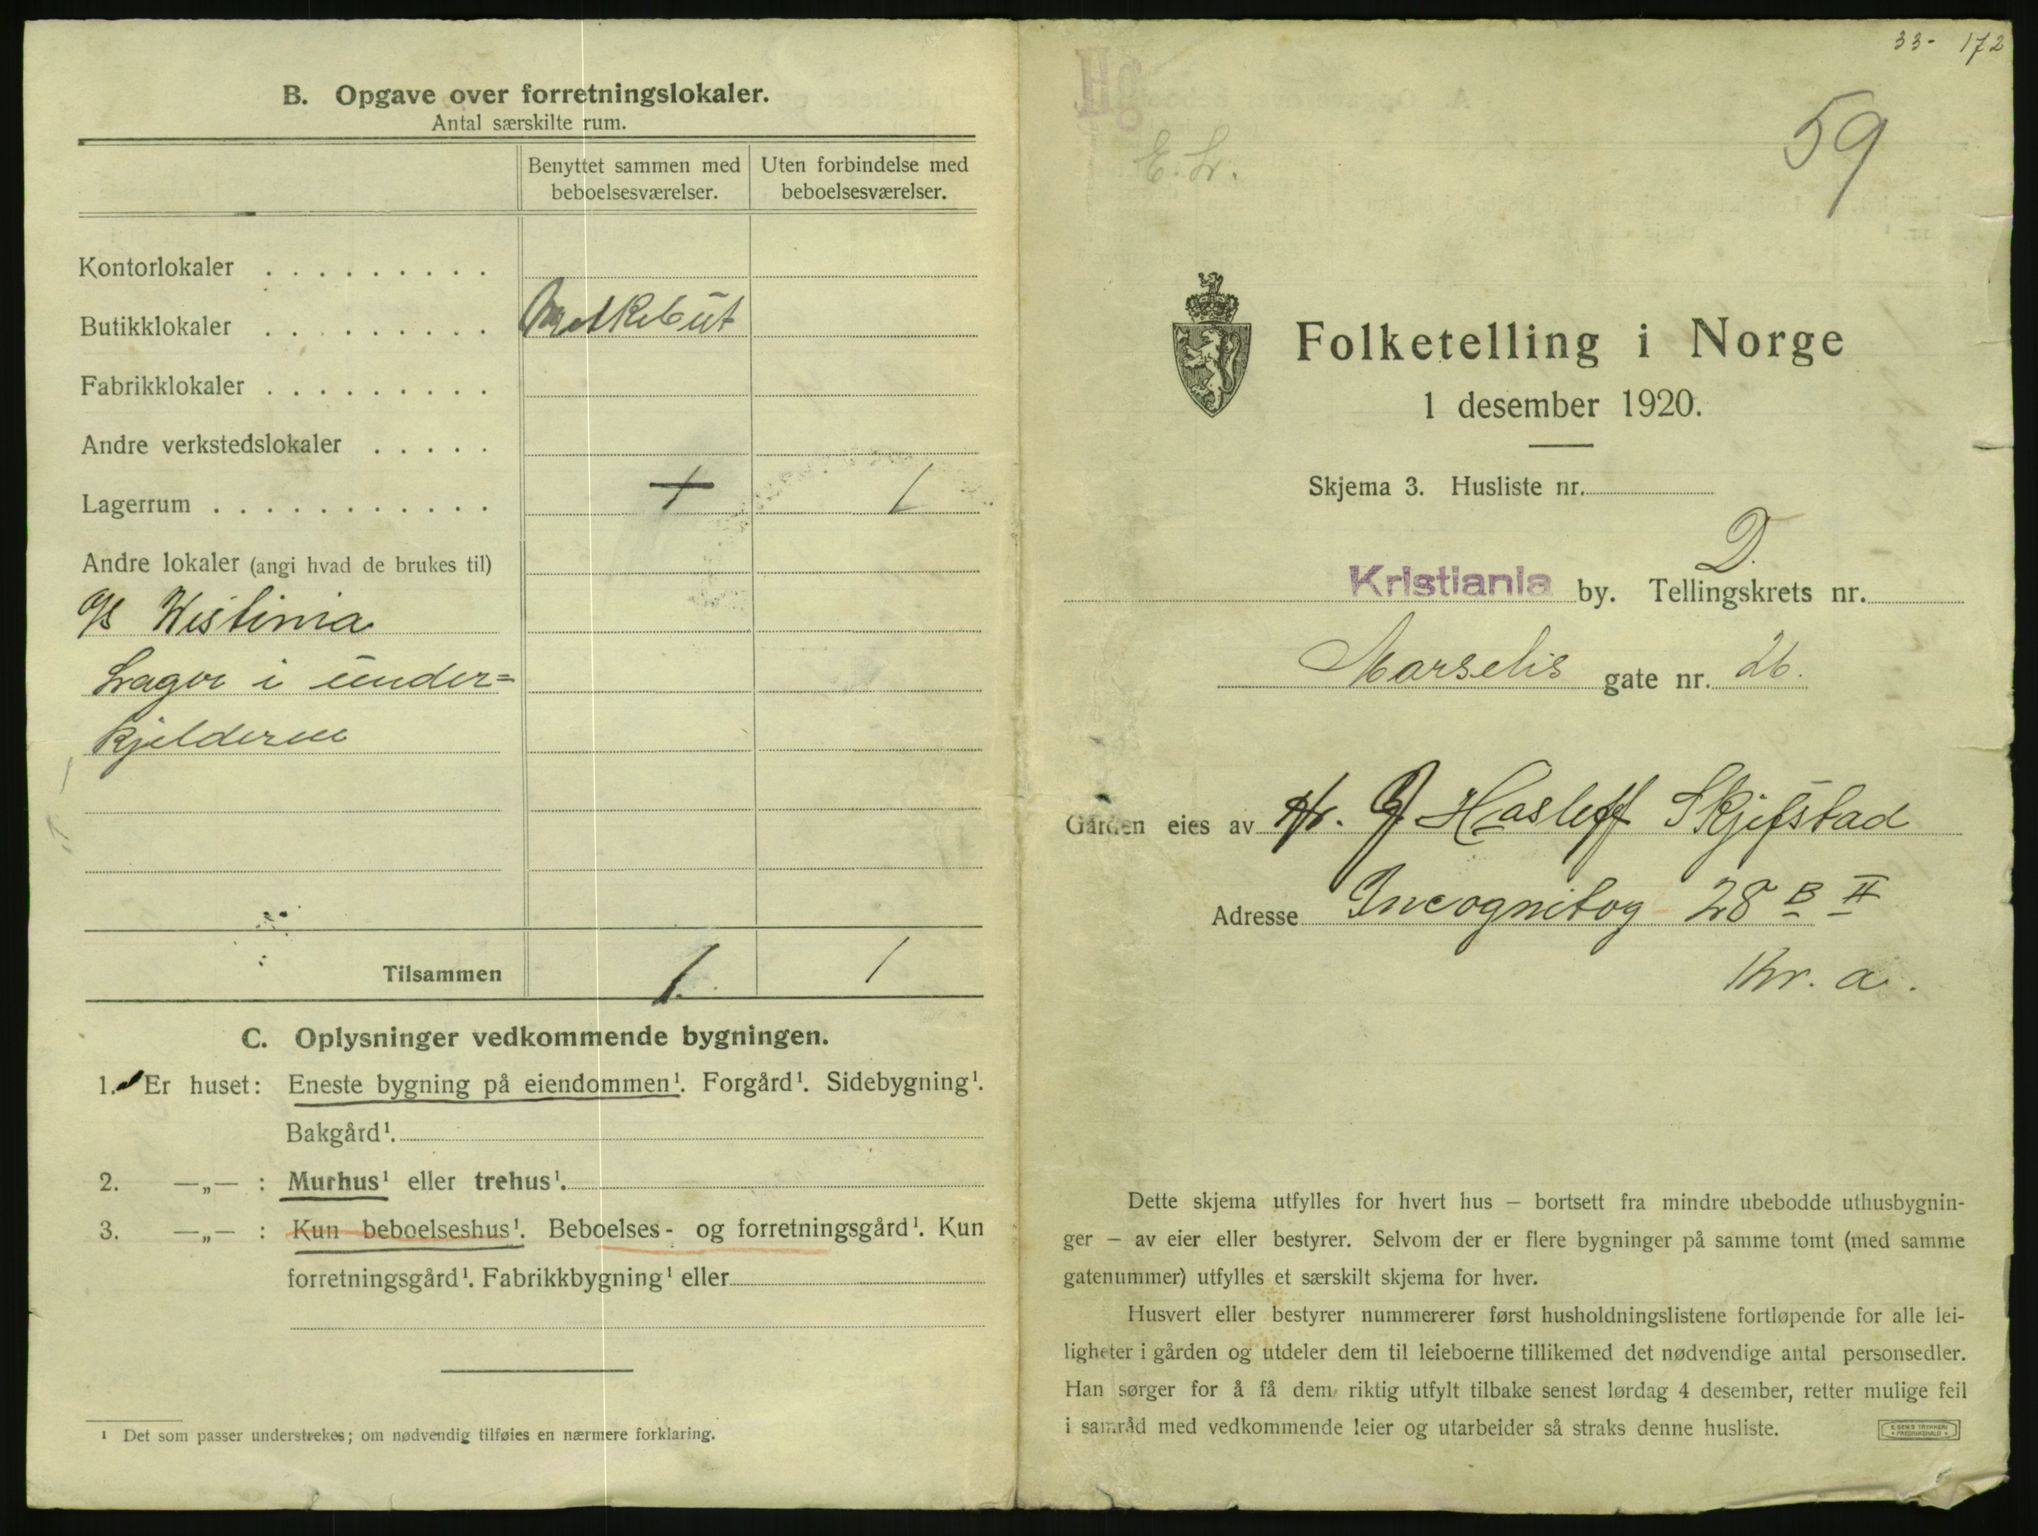 B. Opgave over forretningslokaler.
Antal særskilte rum.
Benyttet sammen med beboelsesværelser.
Uten forbindelse med beboelsesværelser.
Kontorlokaler . . . . . . . . .
Butikklokaler . . . . . . . . . Melkebut
Fabrikklokaler . . . . . . . . .
Andre verkstedslokaler . . . . .
Lagerrum . . . . . . . . . . . 1 1
Andre lokaler (angi hvad de brukes til)
A/S Wistinia
Lager i under=
kjelderen
Tilsammen 1. 1
C. Oplysninger vedkommende bygningen.
1. Er huset: Eneste bygning på eiendommen¹. Forgård¹. Sidebygning¹.
Bakgård¹.
2. —„— : Murhus¹ eller trehus¹.
3. —„— : Kun beboelseshus¹. Beboelses- og forretningsgård¹. Kun
forretningsgård¹. Fabrikkbygning¹ eller
¹ Det som passer understrekes; om nødvendig tilføies en nærmere forklaring.
33- 172
59
E. Lr.
Folketelling i Norge
1 desember 1920.
Skjema 3. Husliste nr.
D.
Kristiania by. Tellingskrets nr.
Marselis gate nr. 26.
Gården eies av Hr. J. Hasleff Skjefstad
Adresse Incognitog 28 B II
Kr. a.
Dette skjema utfylles for hvert hus – bortsett fra mindre ubebodde uthusbygnin-
ger – av eier eller bestyrer. Selvom der er flere bygninger på samme tomt (med samme
gatenummer) utfylles et særskilt skjema for hver.
Husvert eller bestyrer nummererer først husholdningslistene fortløpende for alle lei-
ligheter i gården og utdeler dem til leieboerne tillikemed det nødvendige antal personsedler.
Han sørger for å få dem riktig utfylt tilbake senest lørdag 4 desember, retter mulige feil
i samråd med vedkommende leier og utarbeider så straks denne husliste.
E. SEM'S TRYKKERI
FREDRIKSHALD